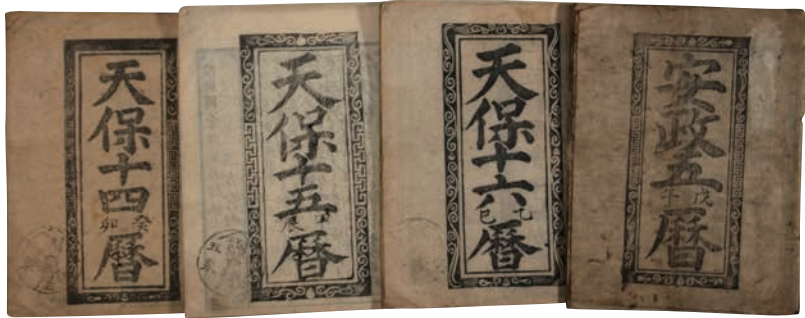 天保十四癸卯曆
天保十五辰曆
天保十六乙巳曆
安政五戊午曆